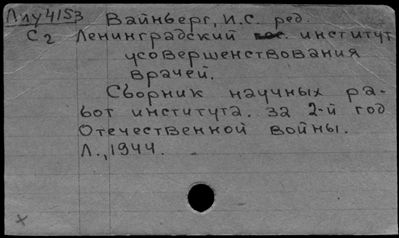 Ллу4153 Вайнберг, И.С. ред.
С2 Ленинградский гос. институт
усовершенствования
врачей.
Сборник научных ра-
бот института. за 2-й год
Отечественной войны.
Л., 1944.
х